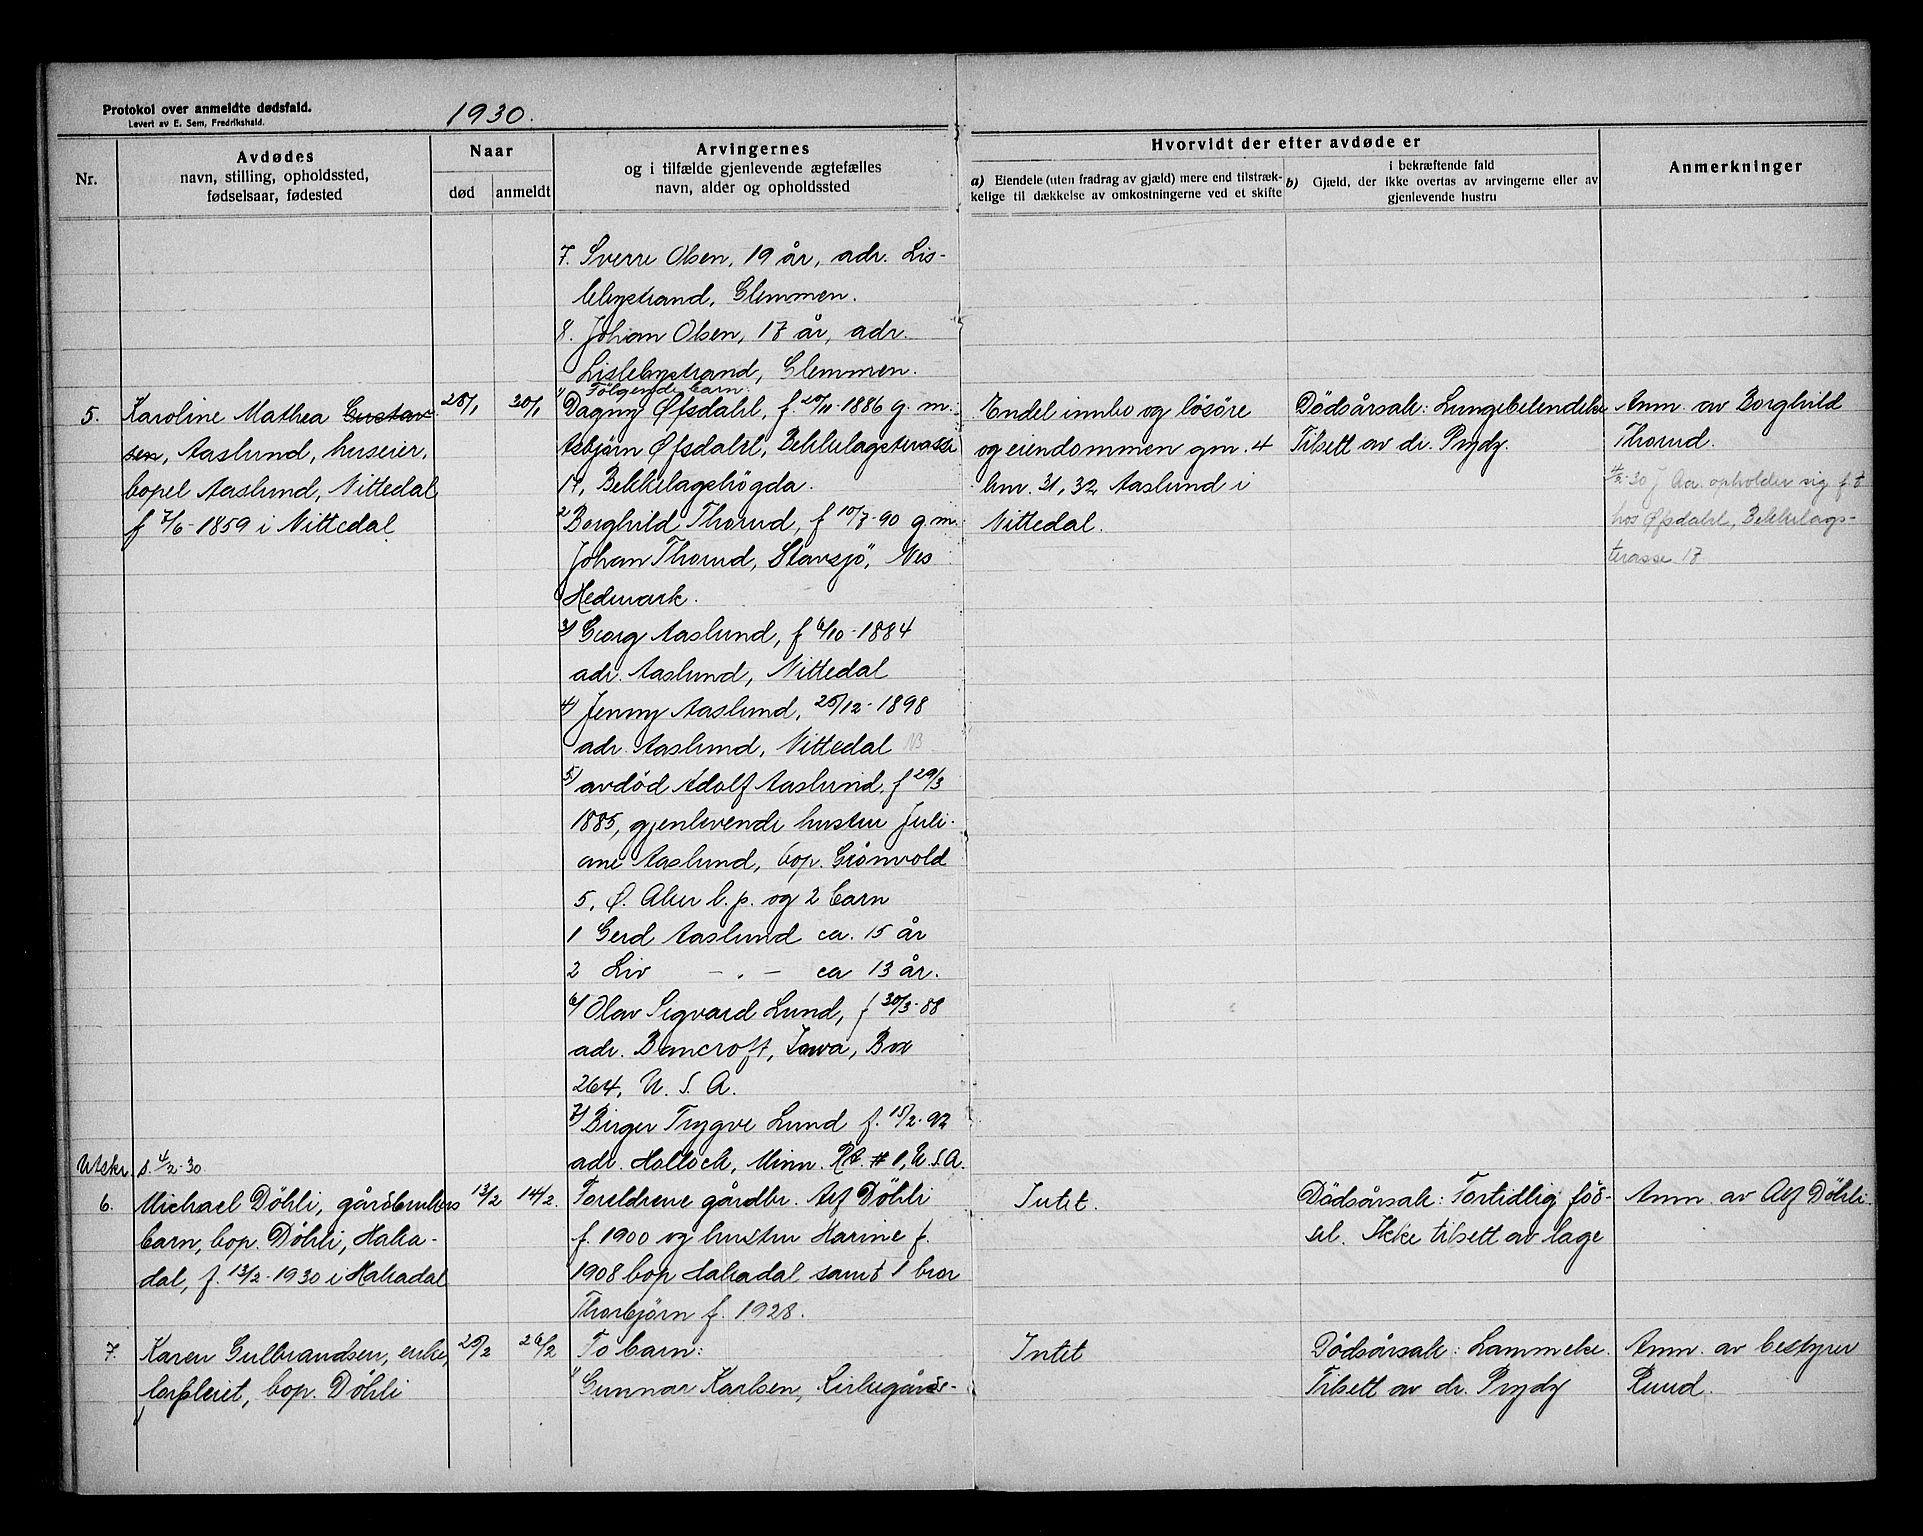 Protokol over anmeldte dødsfald.
Levert av E. Sem, Fredrikshald.
1930.
Nr.
Avdødes
navn, stilling, opholdssted,
fødselsaar, fødested
Naar
død
anmeldt
Arvingernes
og i tilfælde gjenlevende ægtefælles
navn, alder og opholdssted
Hvorvidt der efter avdøde er
a) Eiendele (uten fradrag av gjæld) mere end tilstræk-
kelige til dækkelse av omkostningerne ved et skifte
i bekræftende fald
b) Gjæld, der ikke overtas av arvingerne eller av
gjenlevende hustru
Anmerkninger
7. Sverre Olsen, 19 år, adr. Lis-
lebystrand, Glemmen.
8. Johan Olsen, 17 år, adr.
Lislebystrand, Glemmen.
5.
Karoline Mathea Gustav-
sen, Aaslund, huseier,
bopel Aaslund, Nittedal
f 7/6-1859 i Nittedal
28/1
30/1
Følgende barn:
1) Dagny Øfsdahl, f. 20/11-1886 g. m.
Asbjørn Øfsdahl, Bekkelagsterasse
17, Bekkelagshögda.
2) Borghild Thorud, f 10/7-90 g m.
Johan Thorud, Stavsjö, Nes
Hedmark.
3) Georg Aaslund, f 6/10-1884
adr. Aaslund, Nittedal
4) Jenny Aaslund, 25/12-1898
adr. Aaslund, Nittedal NB
5) avdöd Adolf Aaslund, f 29/3
1885, gjenlevende hustru Juli-
ane Aaslund, bop. Grönvold
5, Ø. Aker l. p. og 2 barn
1 Gerd Aaslund ca. 15 år
2 Liv - " - ca 13 år.
6) Olav Sigvard Lund, f 30/3-88
adr. Bancroft, Iowa, Box
264, U. S. A.
7) Birger Trygve Lund f. 15/2-92
adr. Hallock, Minn. Rt. # 1, U.S.A.
Endel innbo og lösöre
og eiendommen gnr. 4
bnr. 31, 32 Aaslund i
Nittedal.
Dödsårsak: Lungebetendelse
Tilsett av dr. Prydz.
Anm. av Borghild
Thorud.
4/2-30 J Aa. opholder sig f. t
hos Øfsdahl, Bekkelags-
terasse 17
Utskr. s. 4/2-30
6.
Michael Döhli, gårdbrukers
barn, bop. Döhli, Haka-
dal, f. 13/2-1930 i Hakadal
13/2
14/2.
Foreldrene gårdbr. Alf Döhli
f. 1900 og hustru Marine f.
1908 bop Hakadal samt 1 bror
Thorbjörn f. 1928.
Intet.
Dödsårsak: Fortidlig föd-
sel. Ikke tilsett av læge
Anm. av Alf Döhli.
7.
Karen Gulbrandsen, enke,
bop. Döhli
25/2
26/2
To barn:
1) Gunnar Karlsen, Kirkegårds-
Intet
Dödsårsak: Lammelse.
Tilsett av dr. Prydz
Anm. av bestyrer
Ruud.